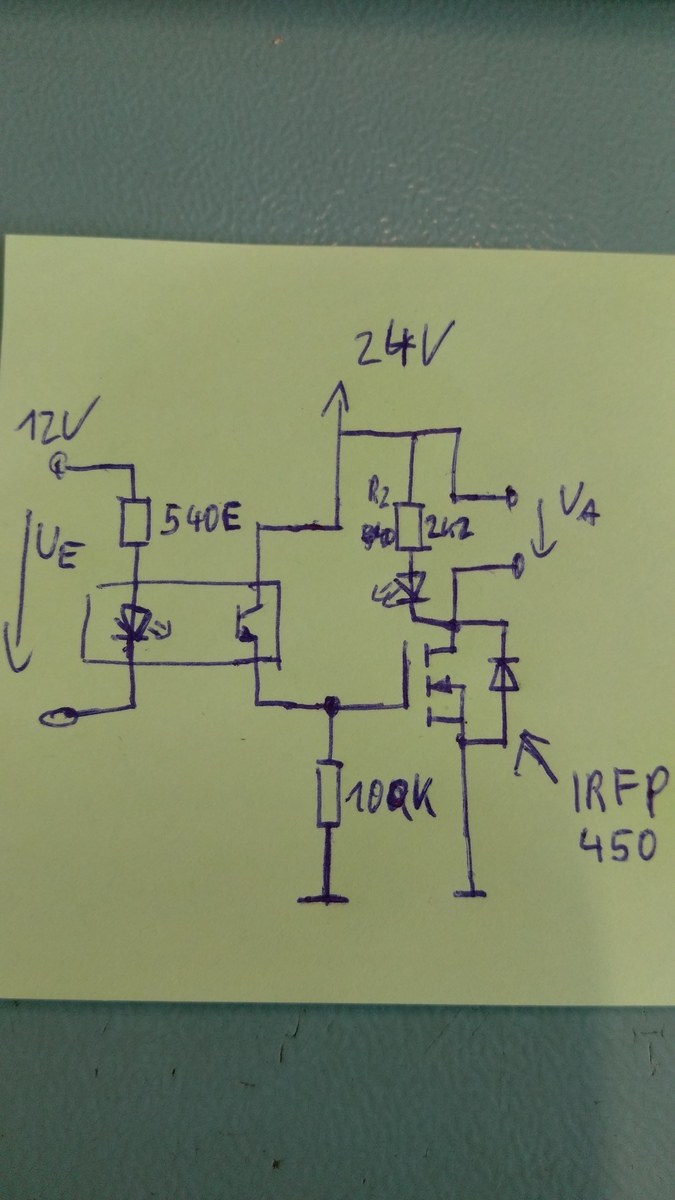 24V
12V
R2
540E
2k2
UE
UA
100K
IRFP
450